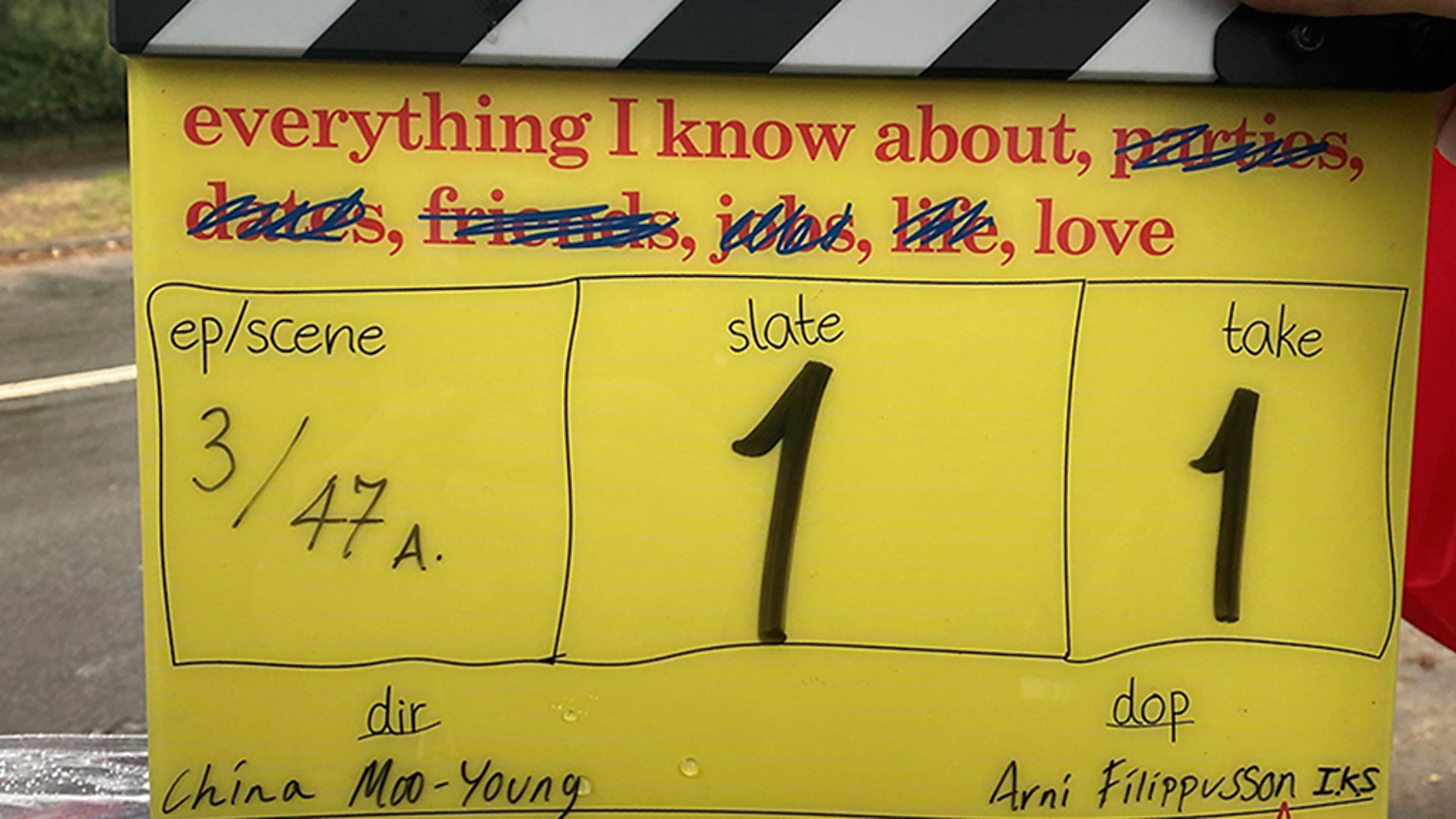 everything I know about, parties,
dates, friends, jobs, life, love
ep/scene
slate
take
3/47A.
1
1
dir
dop
China Moo-Young
Arni Filippusson I.K.S